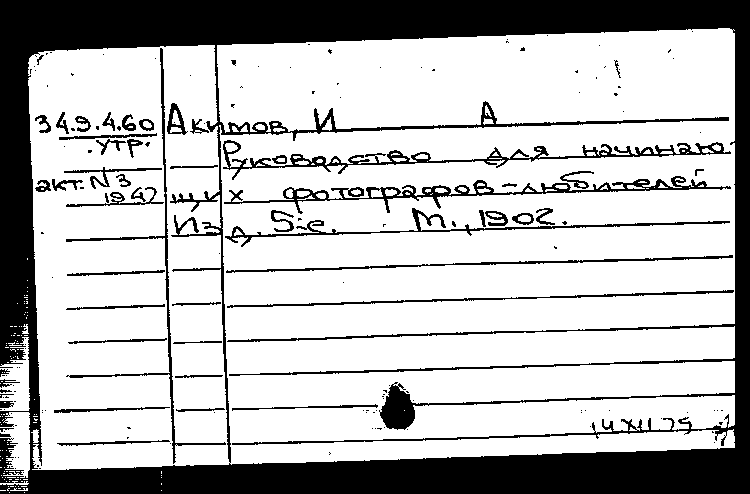 34.9.4.60 Акимов, И А
утр.
Руководство для начинаю-
акт. N3
1947 щих фотографов-любителей
Изд. 5-е. М., 1902.
14 XII 75